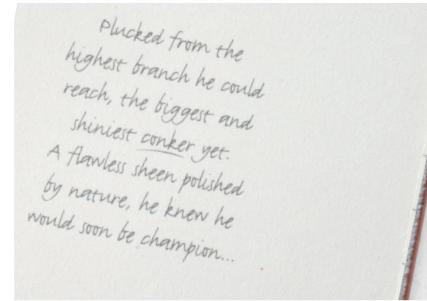 Plucked from the
highest branch he could
reach, the biggest and
shiniest conker yet.
A flawless sheen polished
by nature, he knew he
would soon be champion...